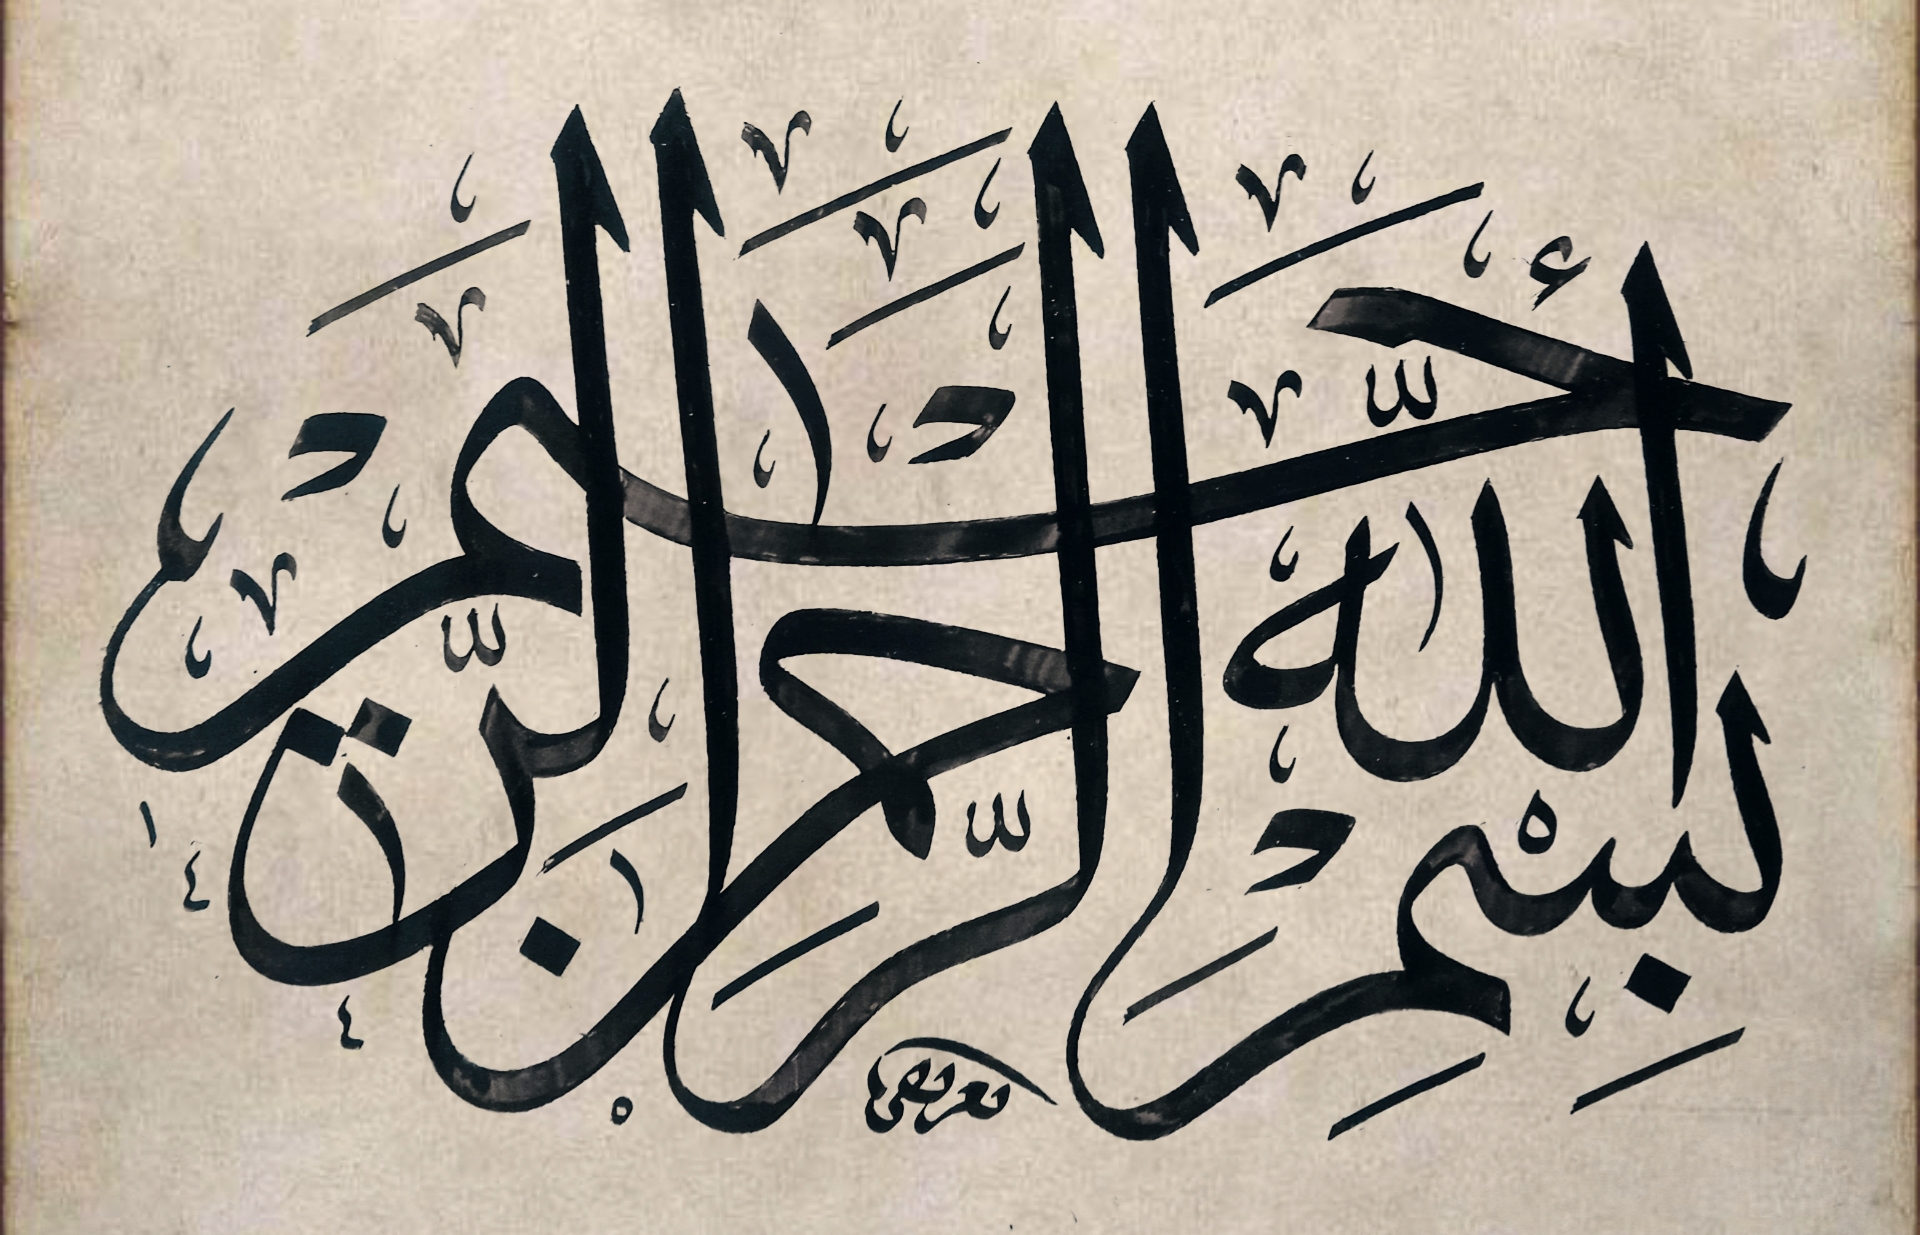 بِسْمِ اللّٰهِ الرَّحْمٰنِ الرَّحِيمِ
١٤٤٥